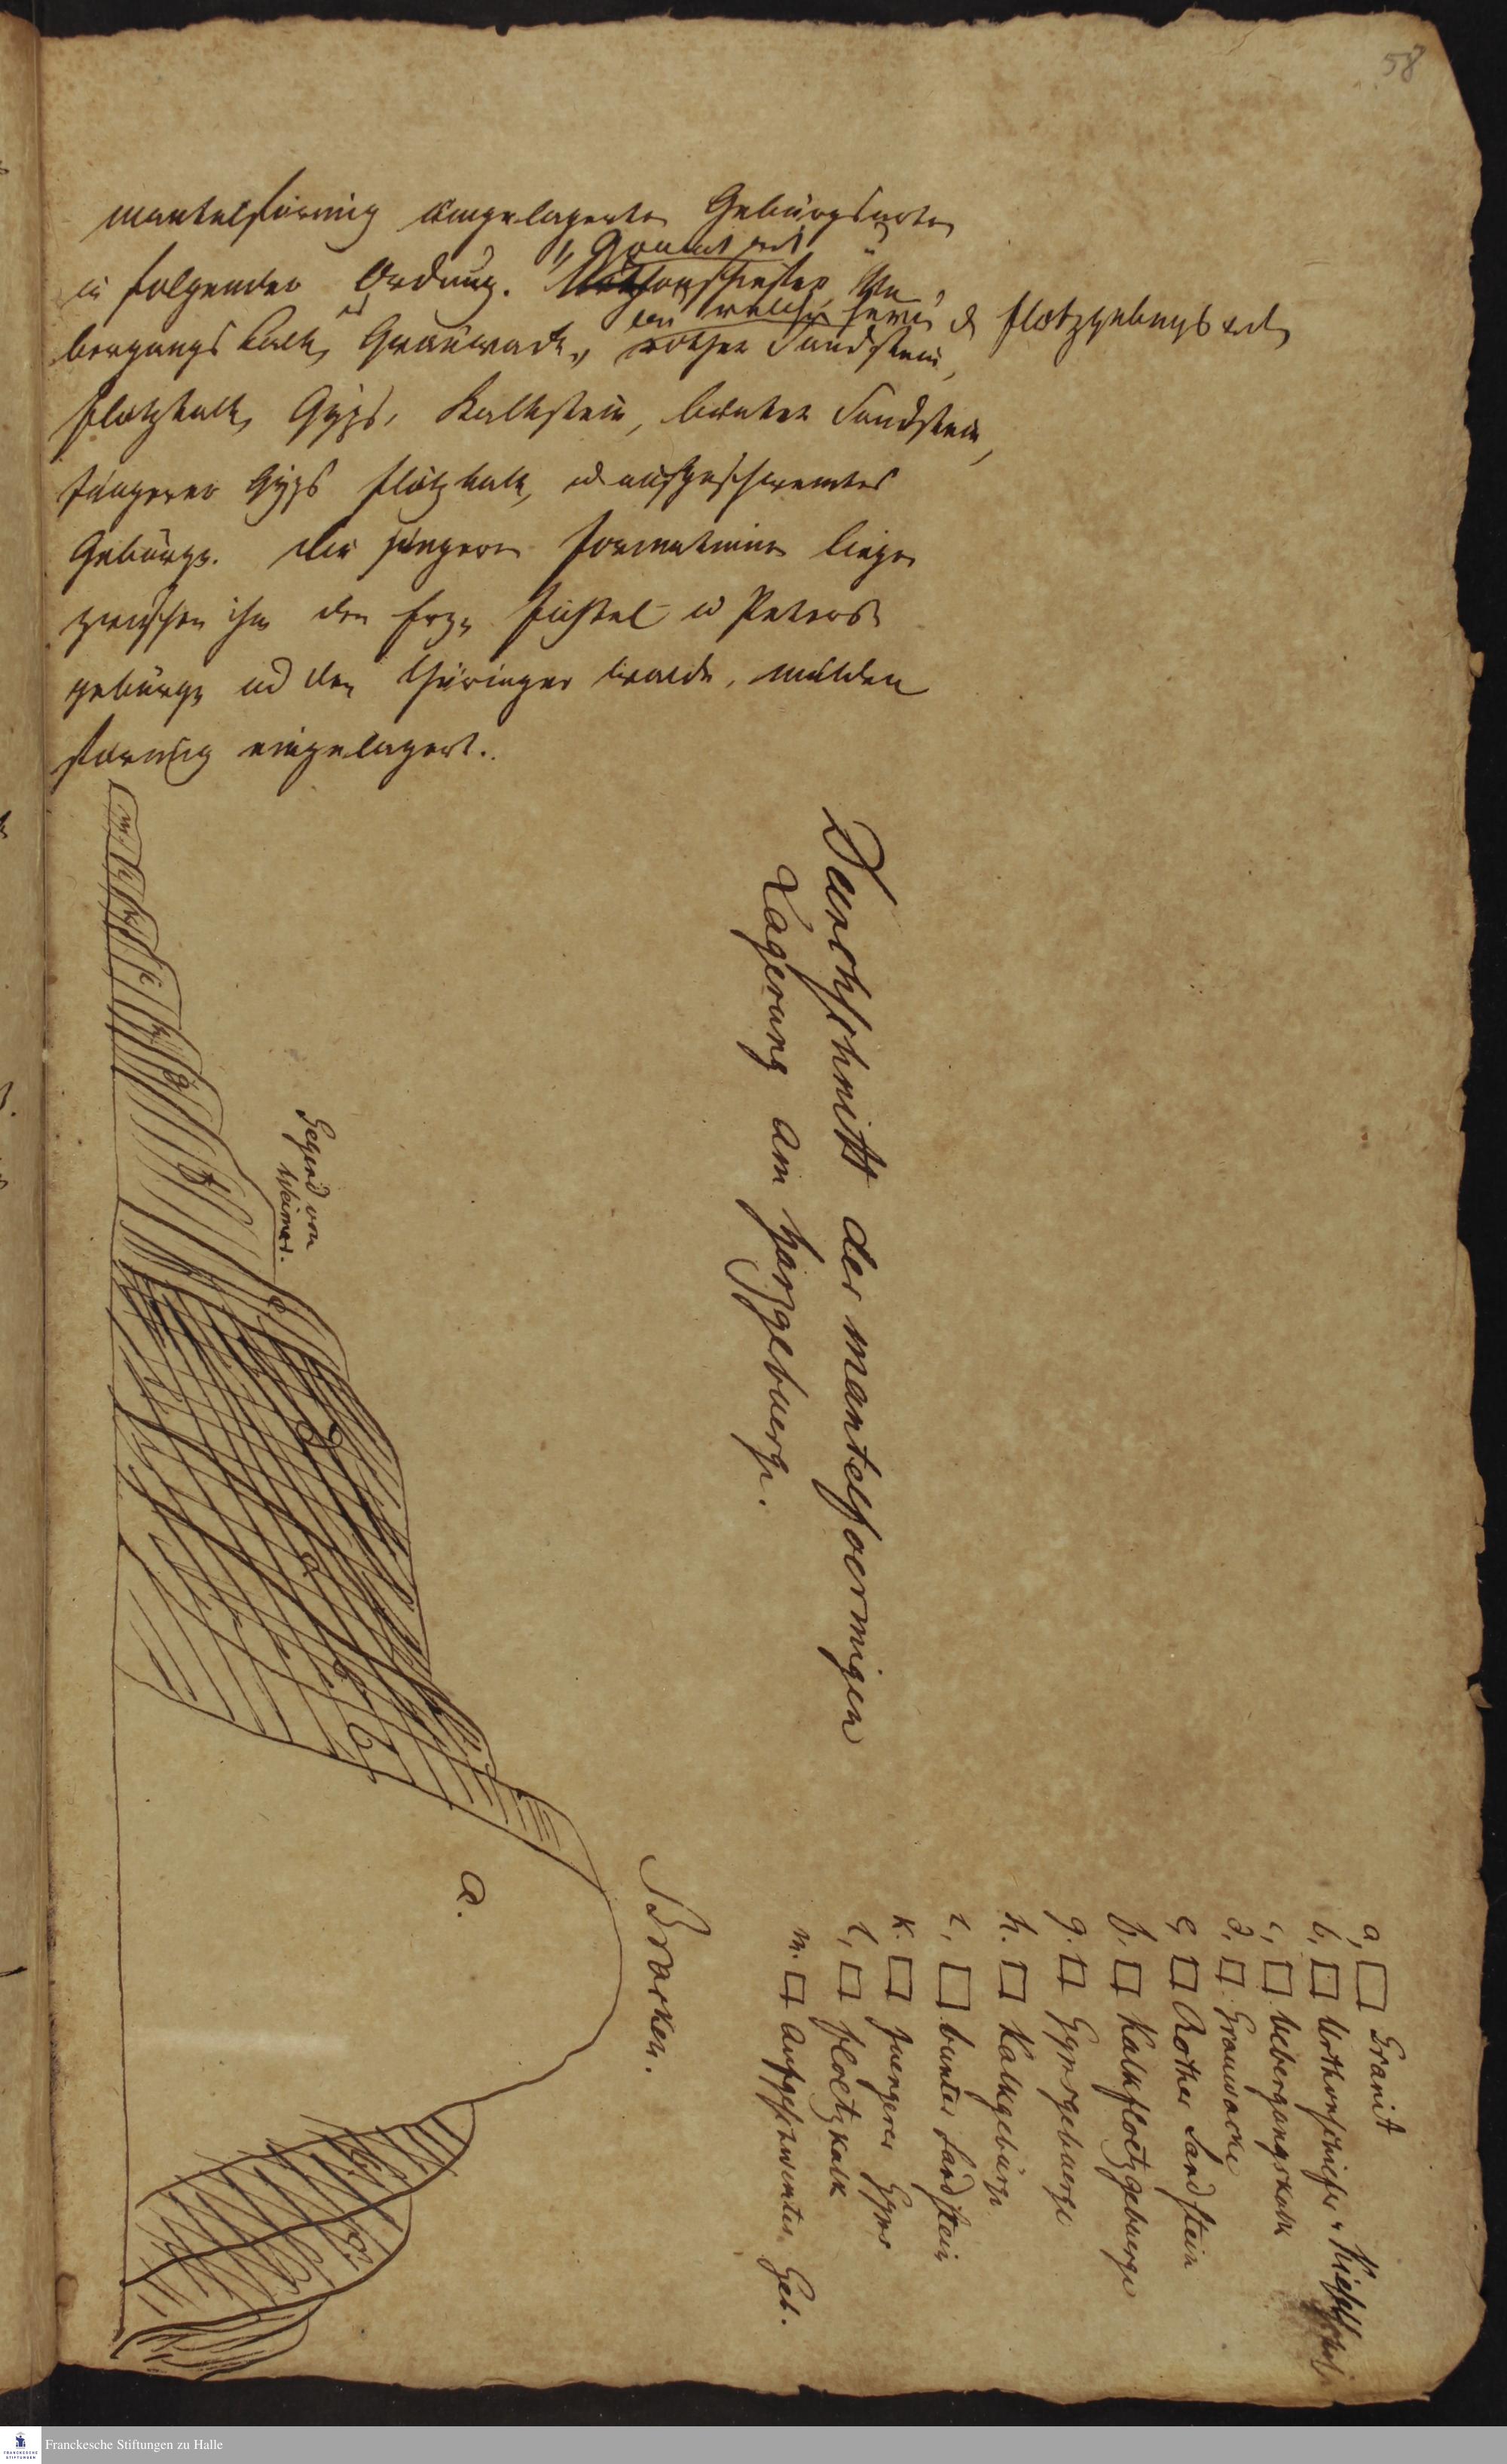 58
mantelförmig angelagerten Gebürgsarten
in folgender Ordnung. Granit
Thonschiefer, Ue
bergangs Kalk, Grauwacke, rother Sandstein,
Flötzgebürgs
flötzkalk, Gyps, Kalkstein, bunter Sandstein,
jüngerer Gyps flötzkalk, aufgeschwemtes
Gebürge. die jüngern formationen liegen
zwischen den u Peters
gebürge und den thüringer walde, mulden
förmig eingelagert.
Durchschnitt der mantelfoermigen
Lagerung am harzgebuerge.
a, Granit
b, Urthonschiefer u. Kieselschief
c, Uebergangskalk
d. Grauwacke
e, Rother Sandstein
f. Kalkfloetzgebuerge
g. Gypsgebuerge
h. Kalkgebürge
i, bunter Sandstein
k. juengerer Gyps
l, floetzkalk
m. Aufgeschwemtes Geb.
Gegend von
Weimar.
Brocken.
a.
b
c
d
e
f
g
h
i
k
l
m.
Franckesche Stiftungen zu Halle